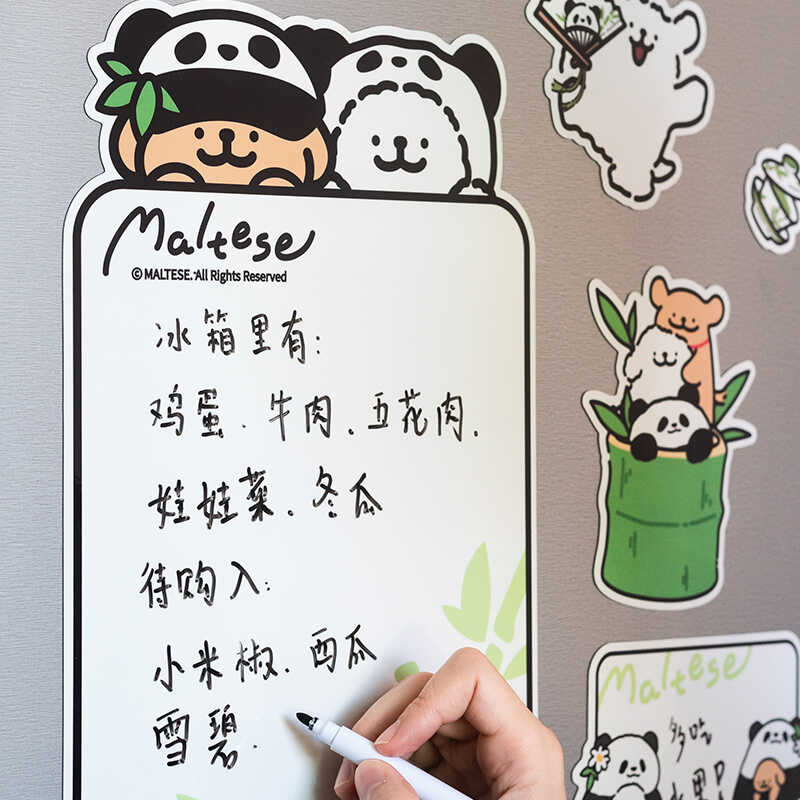 Maltese
© MALTESE. All Rights Reserved
冰箱里有:
鸡蛋、牛肉、五花肉、
娃娃菜、冬瓜
待购入:
小米椒、西瓜
雪碧.
Maltese
多吃
水果!